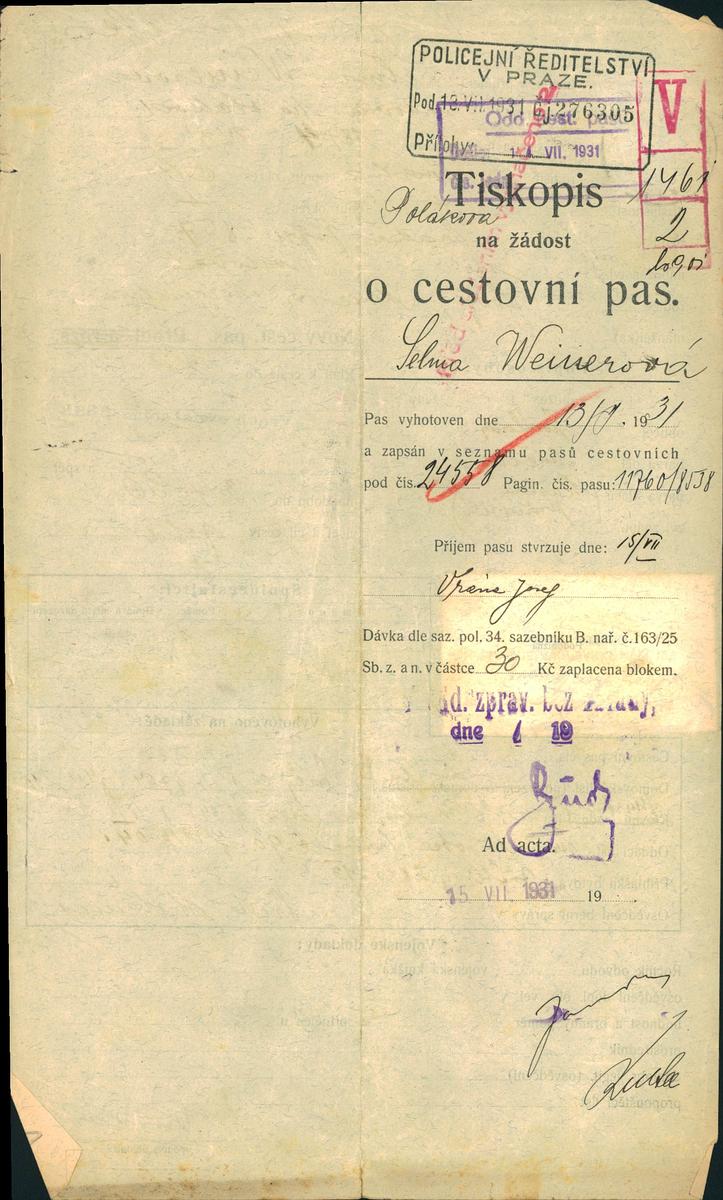 POLICEJNÍ ŘEDITELSTVÍ
V PRAZE.
Pod. 13. VII. 1931 Čj 276305
Odd. cest. pasů
Přílohy:
14. VII. 1931
V
1461
2
Tiskopis
Poláková
na žádost
o cestovní pas.
Selma Weinerová
Pas vyhotoven dne 13/ . 1931
a zapsán v seznamu pasů cestovních
pod čís. 24558 Pagin. čís. pasu: 11760/8558
Příjem pasu stvrzuje dne: 15/VII
Vrána Josef
Dávka dle saz. pol. 34. sazebníku B. nař. č. 163/25
Sb. z. a n. v částce 30 Kč zaplacena blokem.
zprav. bez
dne 19
Ad acta.
15 VII 1931 19